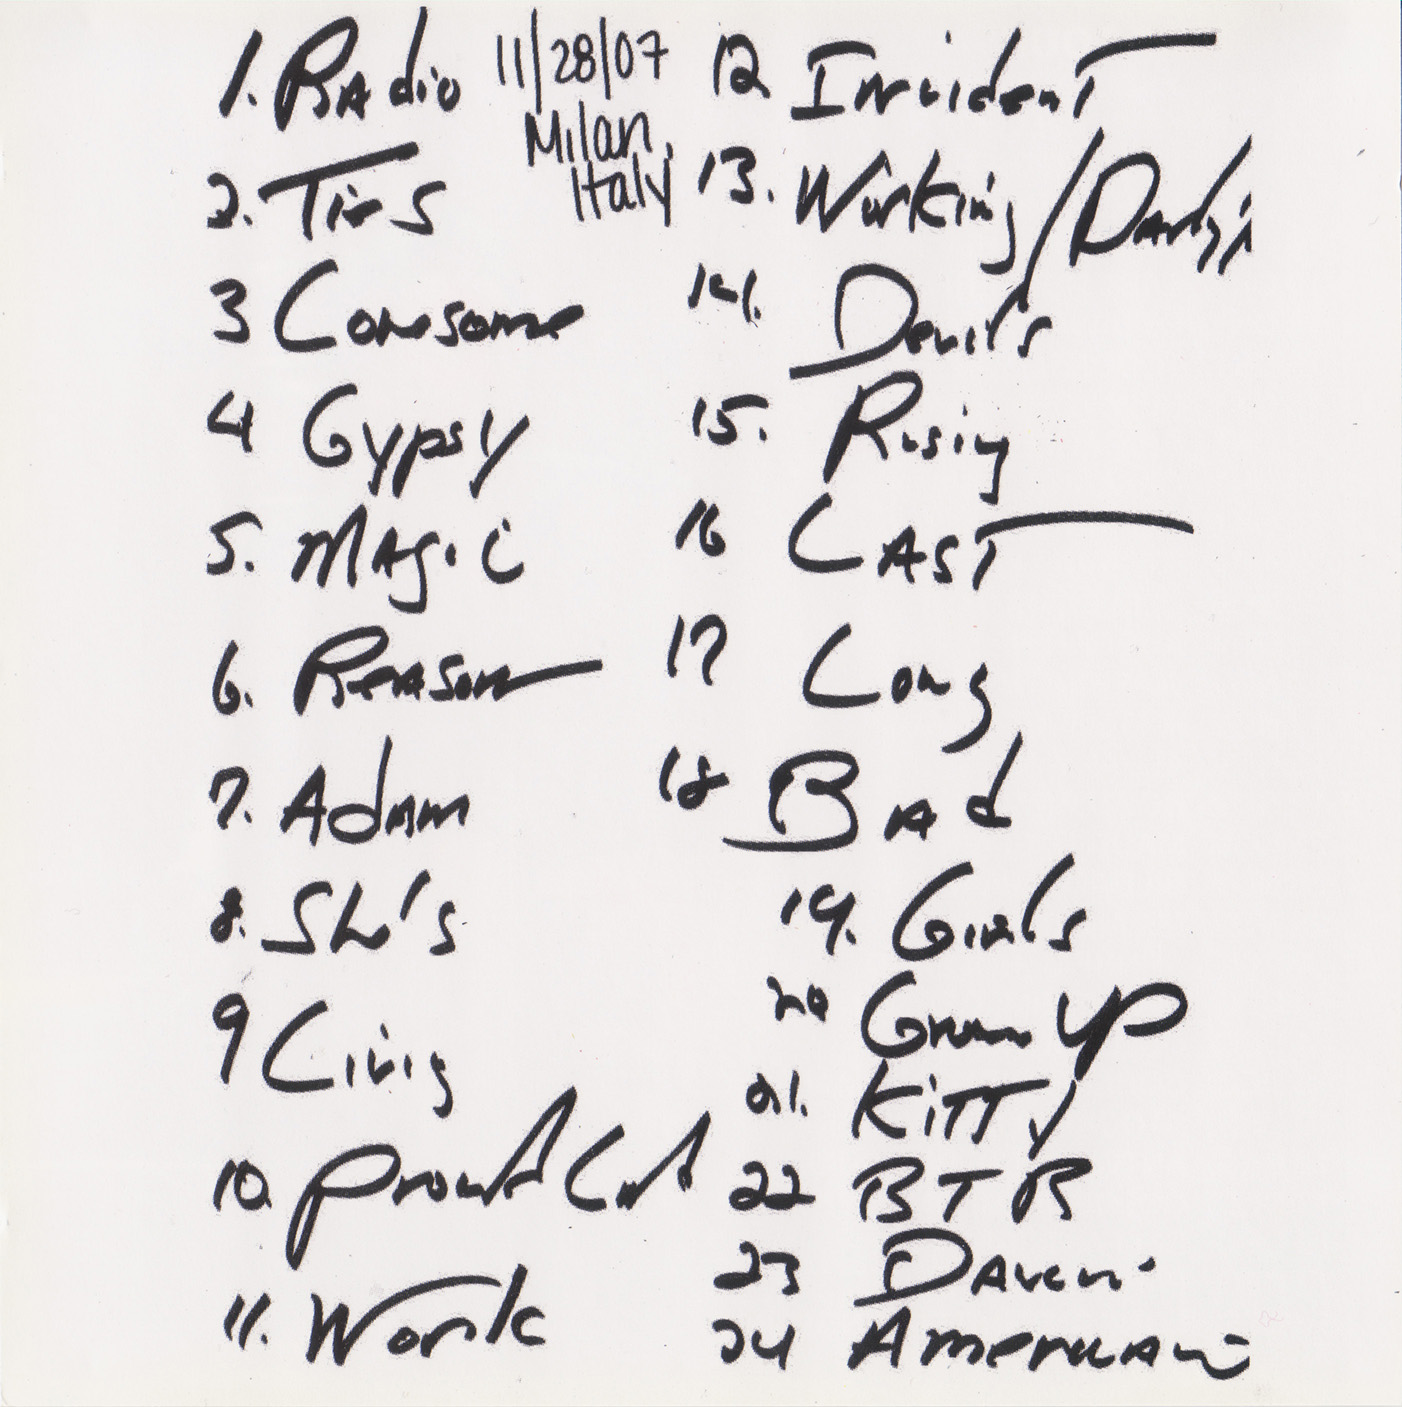 1. Radio
2. Ties
3 Lonesome
4 Gypsy
5. Magic
6. Reason
7. Adam
8. She's
9 Living
10. Promised Land
11. Work
11/28/07
Milan,
Italy
12 Incident
13. Working/Darlin
14. Devils
15. Rising
16 LAST
17 Long
18 Bad
19. Girls
20 Growin UP
21. KiTTy
22 BTR
23 Dancin
24 American